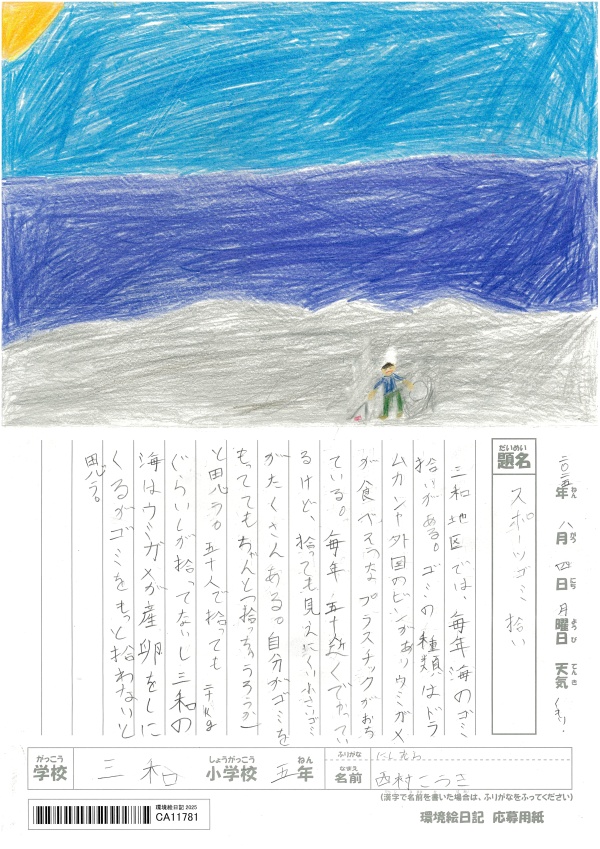 二〇二五年ねん 八月がつ 四日にち 月曜日ようび 天気てんき くもり
だいめい
題名
スポーツゴミ拾い
三和地区では、毎年海のゴミ
拾いがある。ゴミの種類はドラ
ムカンや外国のビンがありウミガメ
が食べそうなプラスチックがおち
ている。毎年五十近くでやってい
るけど、拾っても見えにくい小さいゴミ
がたくさんある。自分がゴミを
もってても ちゃんと拾っちゃうろうか
と思う。五十人で拾っても 二千kg
ぐらいしか拾ってないし三和の
海はウミガメが産卵をしに
くるがゴミをもっと拾わないと
思う。
がっこう しょうがっこう ねん
学校 三和 小学校 五年
ふりがな にしむら
なまえ
名前 西村こうき
(漢字で名前を書いた場合は、ふりがなをふってください)
環境絵日記 2025
CA11781
環境絵日記 応募用紙